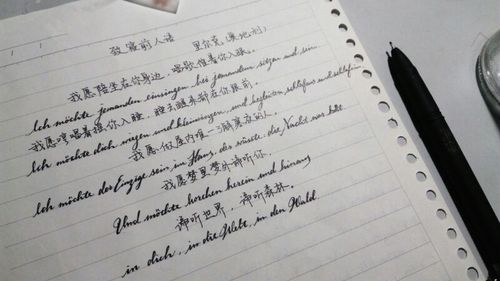 致寝前人语 里尔克（奥地利）
我愿陪坐在你身边，唱歌催着你入眠。
Ich möchte jemanden einsingen, bei jemandem sitzen und sein.
我愿哼唱着摇你入睡，睡去醒来都在你眼前。
Ich möchte dich wiegen und kleinsingen, und begleiten schlafaus und schlafein.
我愿似屋内唯一了解寒夜的人。
Ich möchte der Einzige sein, im Haus, der wüsste, die Nacht war kalt.
我愿梦里梦外谛听你
Und möchte horchen herein und hinaus
谛听世界，谛听森林。
in dich, in die Welt, in den Wald.